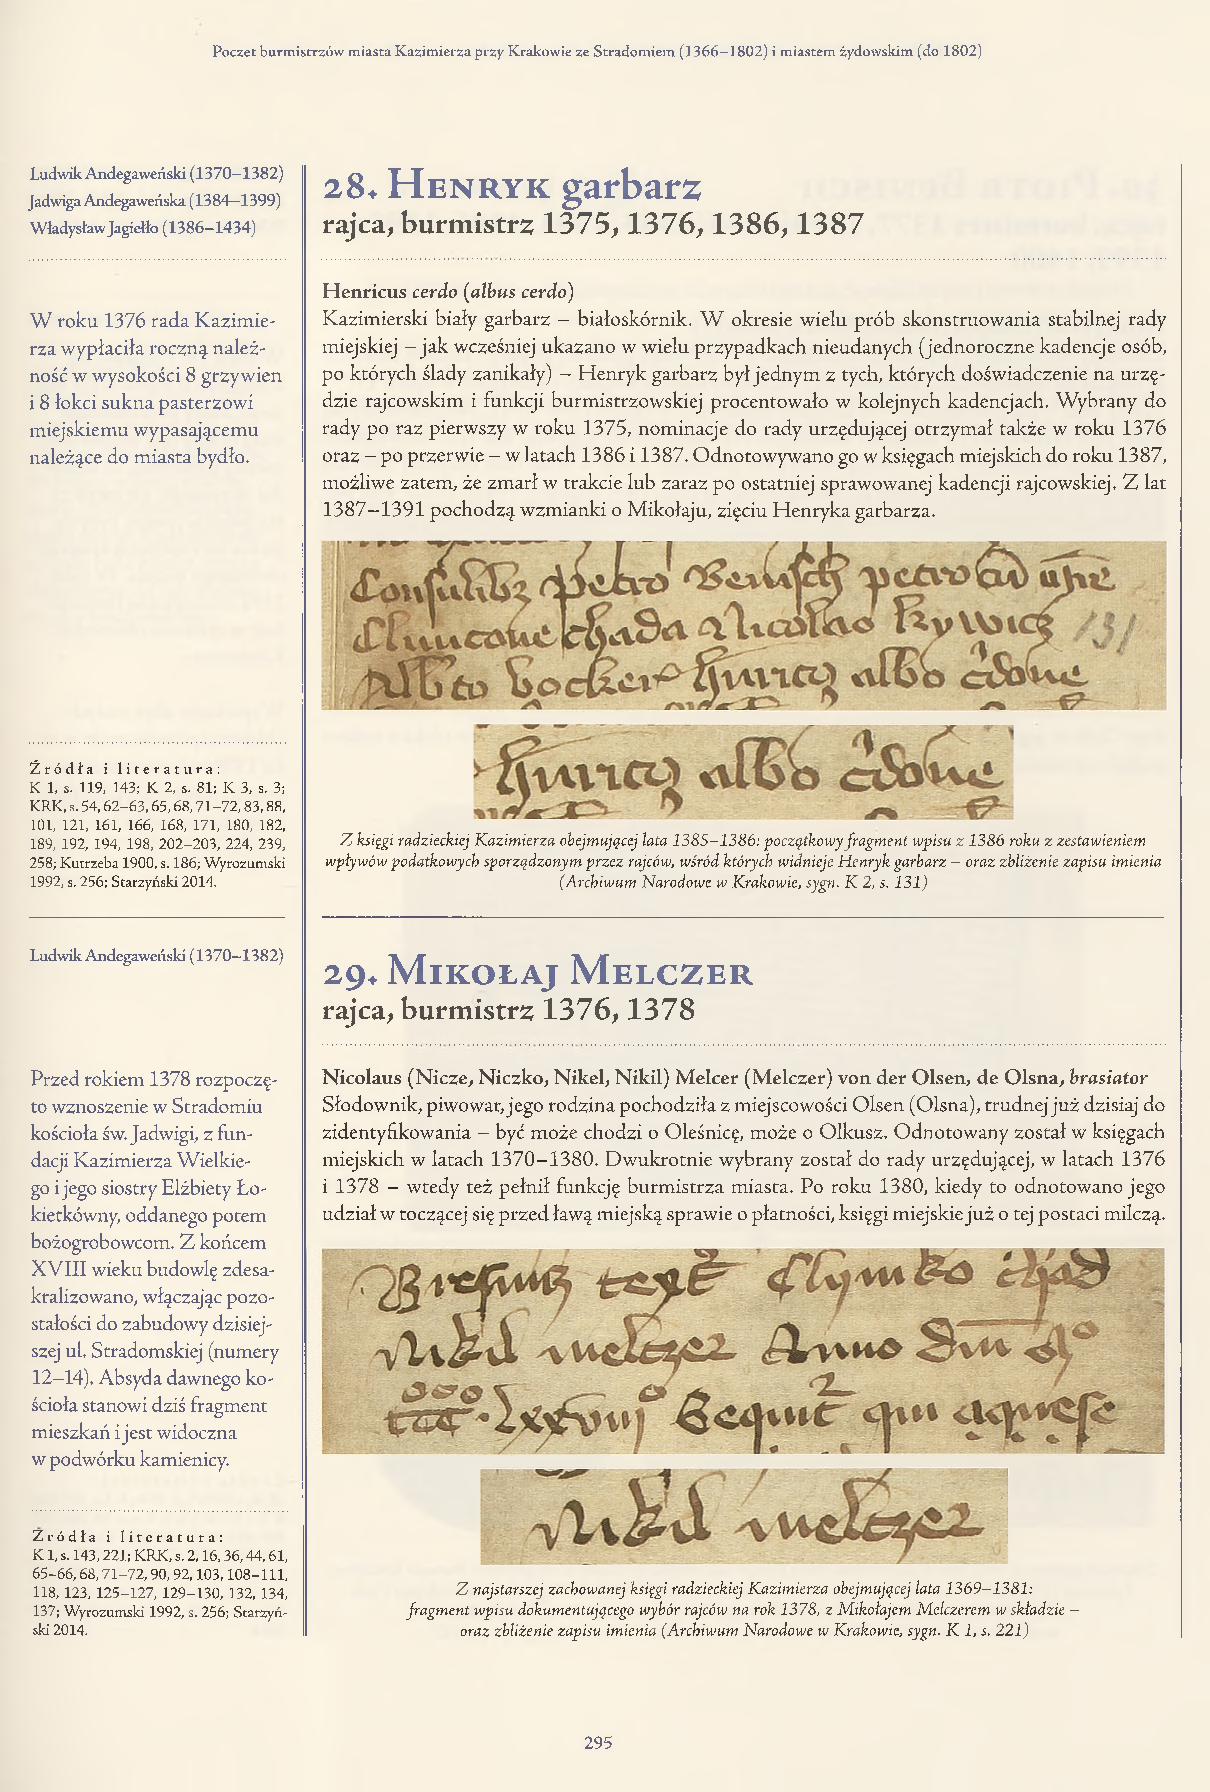 Poczet burmistrzów miasta Kazimierza przy Krakowie ze Stradomiem (1366–1802) i miastem żydowskim (do 1802)
Ludwik Andegaweński (1370–1382)
Jadwiga Andegaweńska (1384–1399)
Władysław Jagiełło (1386–1434)
W roku 1376 rada Kazimie-
rza wypłaciła roczną należ-
ność w wysokości 8 grzywien
i 8 łokci sukna pasterzowi
miejskiemu wypasającemu
należące do miasta bydło.
Źródła i literatura:
K 1, s. 119, 143; K 2, s. 81; K 3, s. 3;
KRK, s. 54, 62–63, 65, 68, 71–72, 83, 88,
101, 121, 161, 166, 168, 171, 180, 182,
189, 192, 194, 198, 202–203, 224, 239,
258; Kutrzeba 1900, s. 186; Wyrozumski
1992, s. 256; Starzyński 2014.
28. Henryk garbarz
rajca, burmistrz 1375, 1376, 1386, 1387
Henricus cerdo (albus cerdo)
Kazimierski biały garbarz – białoskórnik. W okresie wielu prób skonstruowania stabilnej rady
miejskiej – jak wcześniej ukazano w wielu przypadkach nieudanych (jednoroczne kadencje osób,
po których ślady zanikały) – Henryk garbarz był jednym z tych, których doświadczenie na urzę-
dzie rajcowskim i funkcji burmistrzowskiej procentowało w kolejnych kadencjach. Wybrany do
rady po raz pierwszy w roku 1375, nominacje do rady urzędującej otrzymał także w roku 1376
oraz – po przerwie – w latach 1386 i 1387. Odnotowywano go w księgach miejskich do roku 1387,
możliwe zatem, że zmarł w trakcie lub zaraz po ostatniej sprawowanej kadencji rajcowskiej. Z lat
1387–1391 pochodzą wzmianki o Mikołaju, zięciu Henryka garbarza.
petro
131
albo
albo
Z księgi radzieckiej Kazimierza obejmującej lata 1385–1386: początkowy fragment wpisu z 1386 roku z zestawieniem
wpływów podatkowych sporządzonym przez rajców, wśród których widnieje Henryk garbarz – oraz zbliżenie zapisu imienia
(Archiwum Narodowe w Krakowie, sygn. K 2, s. 131)
Ludwik Andegaweński (1370–1382)
Przed rokiem 1378 rozpoczę-
to wznoszenie w Stradomiu
kościoła św. Jadwigi, z fun-
dacji Kazimierza Wielkie-
go i jego siostry Elżbiety Ło-
kietkówny, oddanego potem
bożogrobowcom. Z końcem
XVIII wieku budowlę zdesa-
kralizowano, włączając pozo-
stałości do zabudowy dzisiej-
szej ul. Stradomskiej (numery
12–14). Absyda dawnego ko-
ścioła stanowi dziś fragment
mieszkań i jest widoczna
w podwórku kamienicy.
Źródła i literatura:
K 1, s. 143, 221; KRK, s. 2, 16, 36, 44, 61,
65–66, 68, 71–72, 90, 92, 103, 108–111,
118, 123, 125–127, 129–130, 132, 134,
137; Wyrozumski 1992, s. 256; Starzyń-
ski 2014.
29. Mikołaj Melczer
rajca, burmistrz 1376, 1378
Nicolaus (Nicze, Niczko, Nikel, Nikil) Melcer (Melczer) von der Olsen, de Olsna, brasiator
Słodownik, piwowar, jego rodzina pochodziła z miejscowości Olsen (Olsna), trudnej już dzisiaj do
zidentyfikowania – być może chodzi o Oleśnicę, może o Olkusz. Odnotowany został w księgach
miejskich w latach 1370–1380. Dwukrotnie wybrany został do rady urzędującej, w latach 1376
i 1378 – wtedy też pełnił funkcję burmistrza miasta. Po roku 1380, kiedy to odnotowano jego
udział w toczącej się przed ławą miejską sprawie o płatności, księgi miejskie już o tej postaci milczą.
Nikil melczer Anno
Nikil melczer
Z najstarszej zachowanej księgi radzieckiej Kazimierza obejmującej lata 1369–1381:
fragment wpisu dokumentującego wybór rajców na rok 1378, z Mikołajem Melczerem w składzie –
oraz zbliżenie zapisu imienia (Archiwum Narodowe w Krakowie, sygn. K 1, s. 221)
295